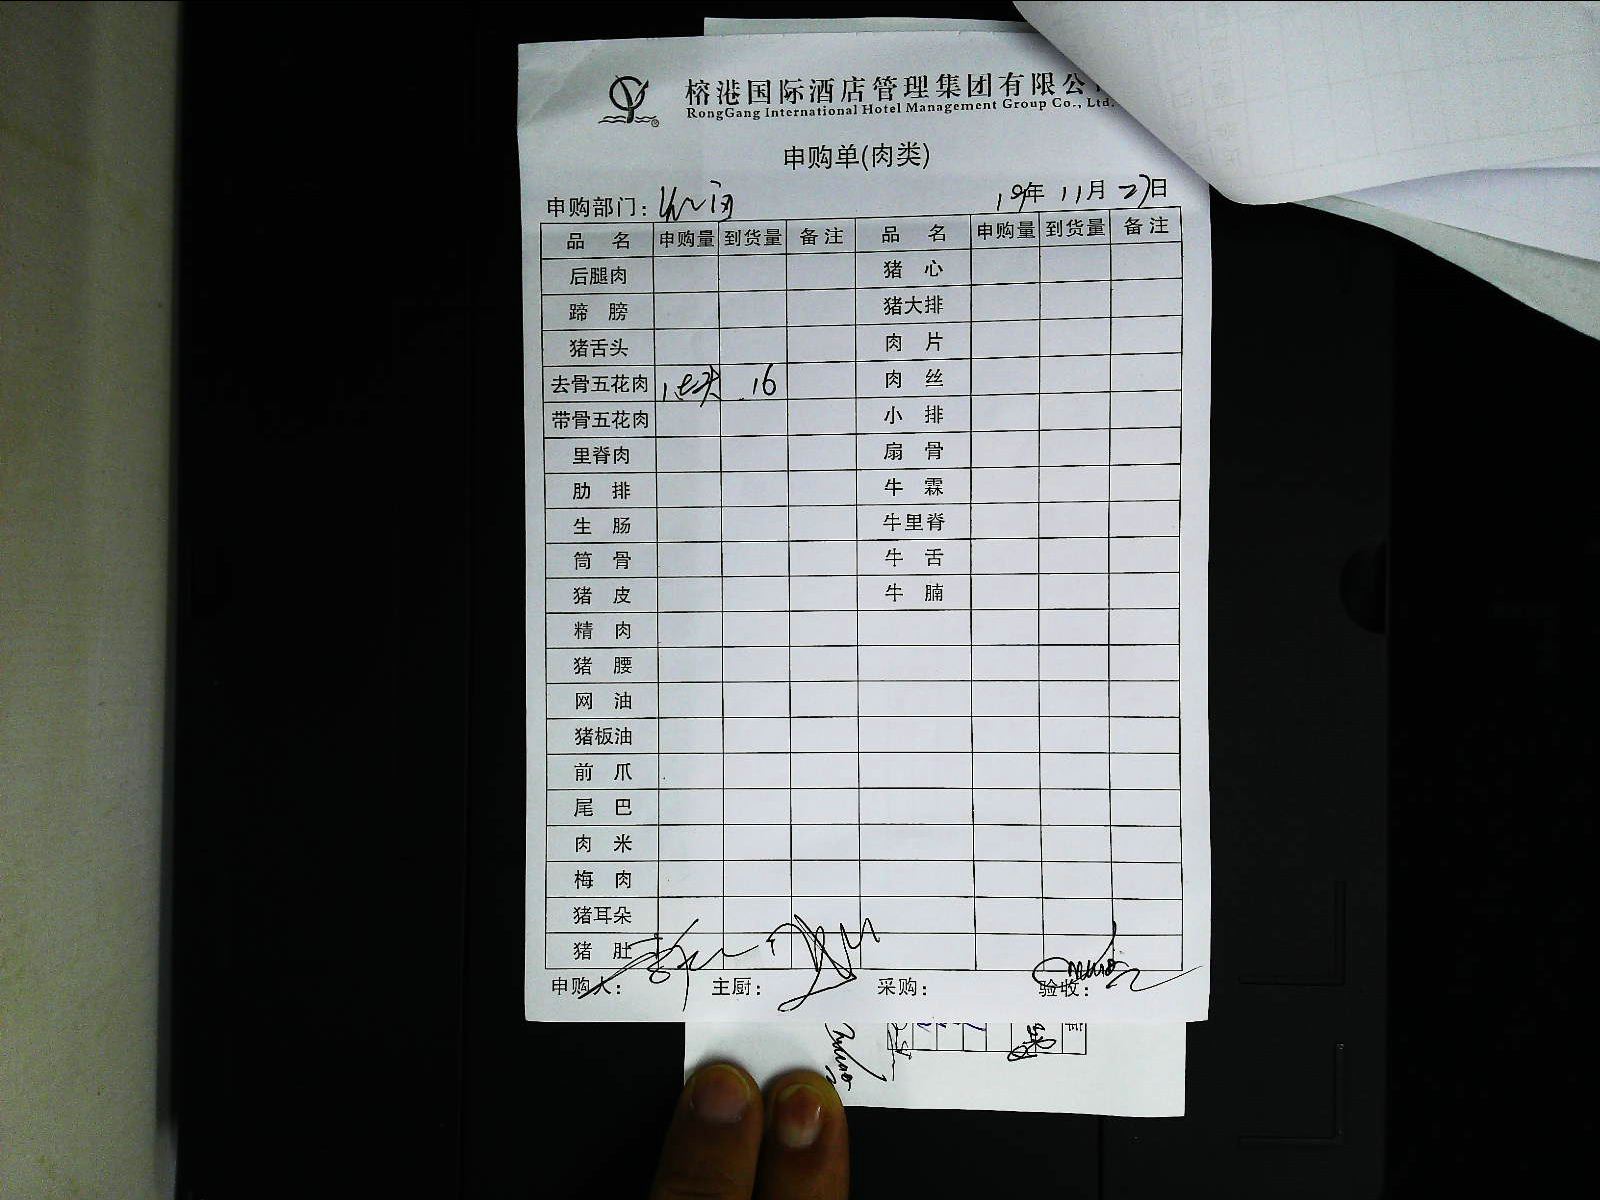 榕港国际酒店管理集团有限公
RongGang International Hotel Management Group Co., Ltd.
申购单(肉类)
申购部门: 19年 11月 27日
品 名 申购量 到货量 备注 品 名 申购量 到货量 备注
后腿肉 猪 心
蹄 膀 猪大排
猪舌头 肉 片
去骨五花肉 16 肉 丝
带骨五花肉 小 排
里脊肉 扇 骨
肋 排 牛 霖
生 肠 牛里脊
筒 骨 牛 舌
猪 皮 牛 腩
精 肉
猪 腰
网 油
猪板油
前 爪
尾 巴
肉 米
梅 肉
猪耳朵
猪 肚
申购人: 主厨: 采购: 验收: